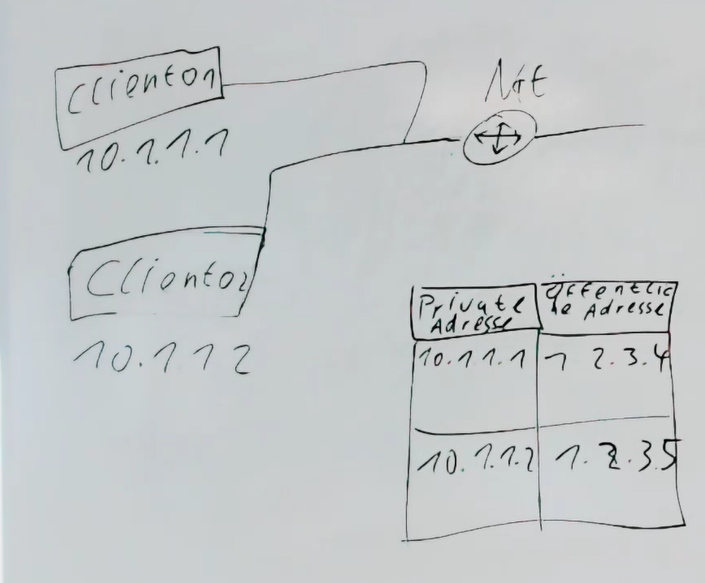 Client01
10.1.1.1
NAT
Client02
10.1 1 2
Private
Adresse
Öffentlic
he Adresse
10.1 1.1
1 2.3.4
10.1.1.2
1.2.3.5